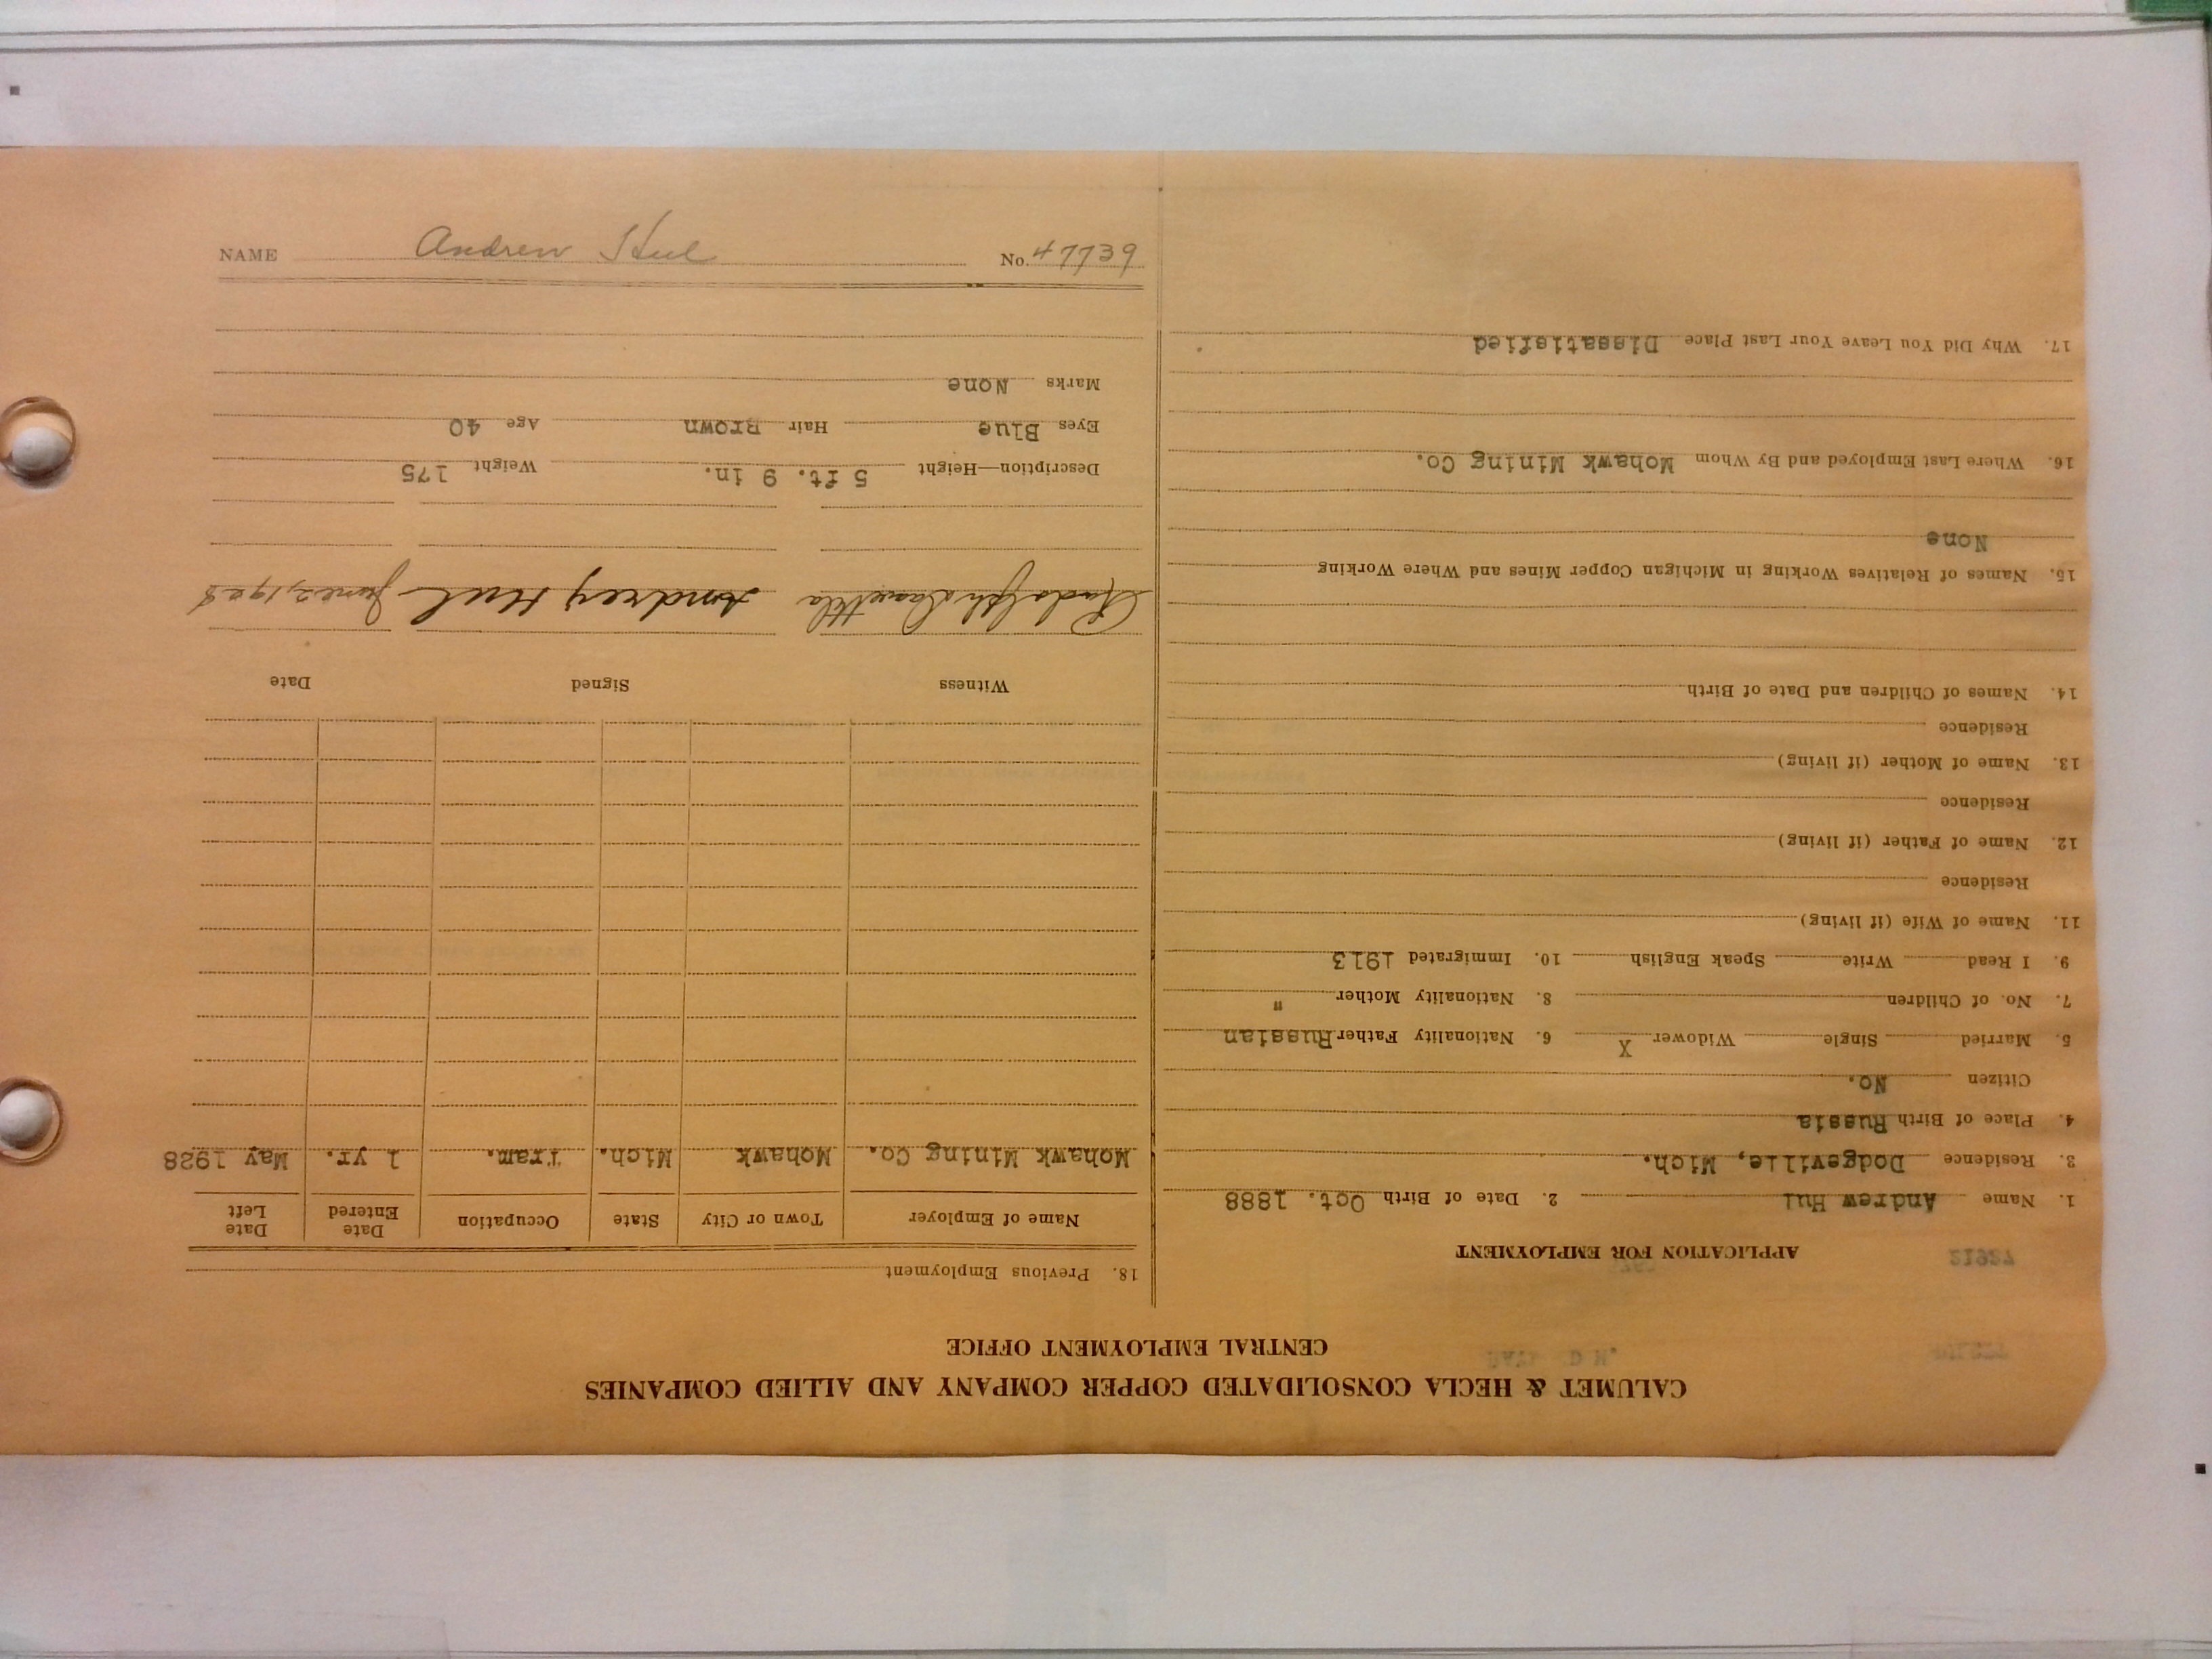 CALUMET & HECLA CONSOLIDATED COPPER COMPANY AND ALLIED COMPANIES
CENTRAL EMPLOYMENT OFFICE
APPLICATION FOR EMPLOYMENT
1. Name Andrew Hul 2. Date of Birth Oct. 1888
3. Residence Dodgeville, Mich.
4. Place of Birth Russia
Citizen No.
5. Married Single Widower X 6. Nationality Father Russian
7. No. of Children 8. Nationality Mother "
9. I Read Write Speak English 10. Immigrated 1913
11. Name of Wife (if living)
Residence
12. Name of Father (if living)
Residence
13. Name of Mother (if living)
Residence
14. Names of Children and Date of Birth
15. Names of Relatives Working in Michigan Copper Mines and Where Working
None
16. Where Last Employed and By Whom Mohawk Mining Co.
17. Why Did You Leave Your Last Place Dissatisfied
18. Previous Employment
Name of Employer Town or City State Occupation Date Entered Date Left
Mohawk Mining Co. Mohawk Mich. Tram. 1 yr. May 1928
Witness Signed Date
Rudolph Andrey Hul June 2, 1928
Description—Height 5 ft. 9 in. Weight 175
Eyes Blue Hair Brown Age 40
Marks None
NAME Andrew Hul No. 47739